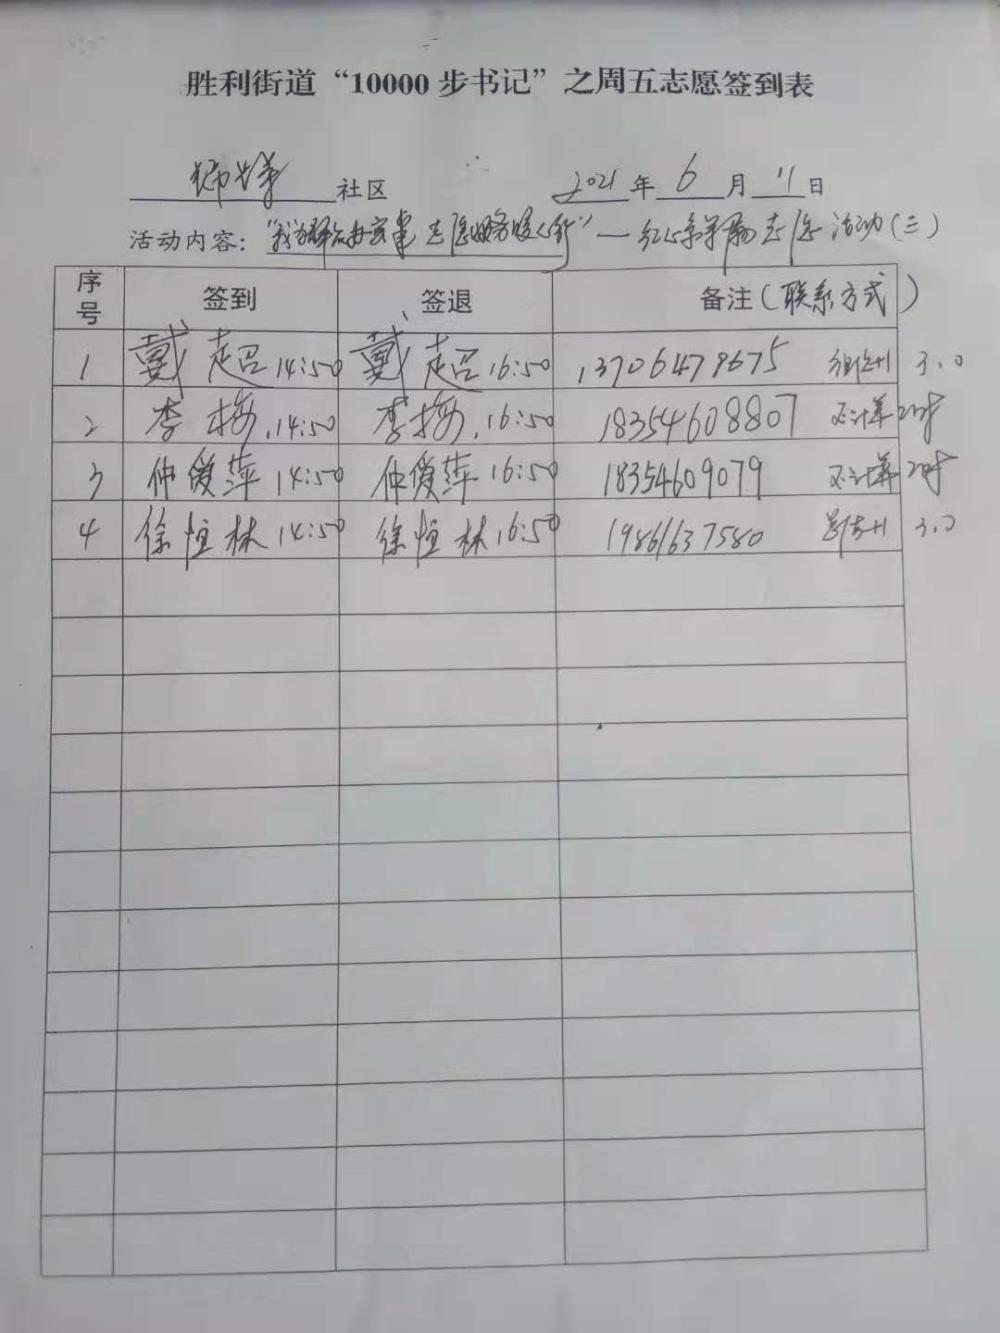 胜利街道“10000步书记”之周五志愿签到表
社区 2021年6月11日
活动内容：“我为群众办实事 志愿服务暖人行”— 志愿活动(三)
序号 签到 签退 备注(联系方式)
1 戴超 14:50 戴超 16:50 13706479675 3.0
2 李梅 14:50 李梅 16:50 18354608807 不计算2小时
3 仲爱萍 14:50 仲爱萍 16:50 18354609079 不计算2小时
4 徐恒林 14:50 徐恒林 16:50 19861637580 3.0